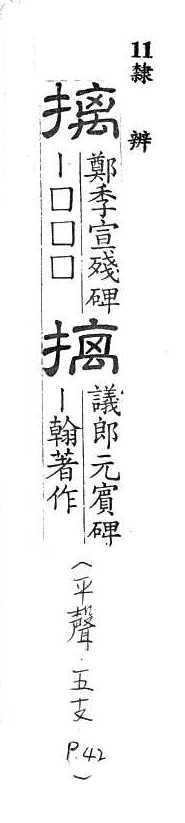 11隸辨
摛
鄭季宣殘碑
丨□□□
摛
議郎元賓碑
丨翰著作
(平聲.五支 P.42)